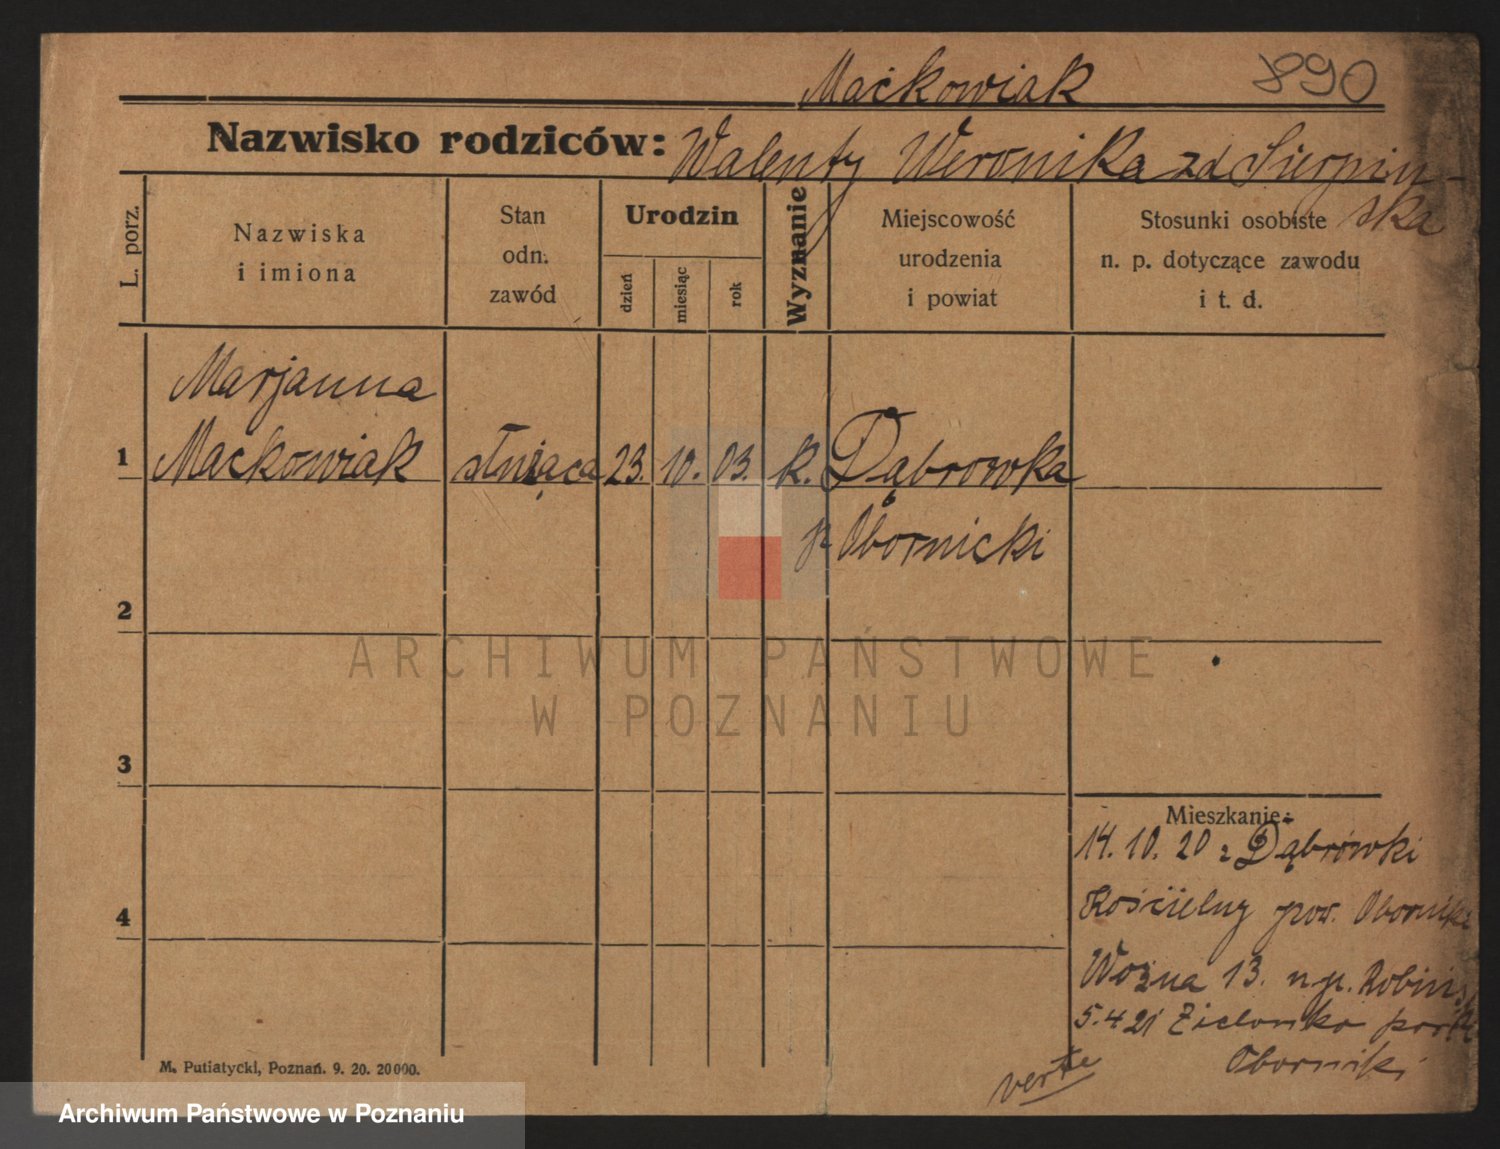 Maćkowiak 890
Nazwisko rodziców: Walenty Weronika zd Sierpiń-
ska
L. porz.
Nazwiska
i imiona
Stan
odn.
zawód
Urodzin
dzień
miesiąc
rok
Wyznanie
Miejscowość
urodzenia
i powiat
Stosunki osobiste
n. p. dotyczące zawodu
i t. d.
Marjanna
1 Maćkowiak służąca 23. 10. 03. k. Dąbrowka
p Obornicki
2
3
4
Mieszkanie:
14. 10. 20 z Dąbrówki
Kościelny pow. Oborniki
Wozna 13. n p.
5. 4 21 Zielonka
Oborniki
verte
M. Putiatycki, Poznań. 9. 20. 20000.
ARCHIWUM PAŃSTWOWE
W POZNANIU
Archiwum Państwowe w Poznaniu